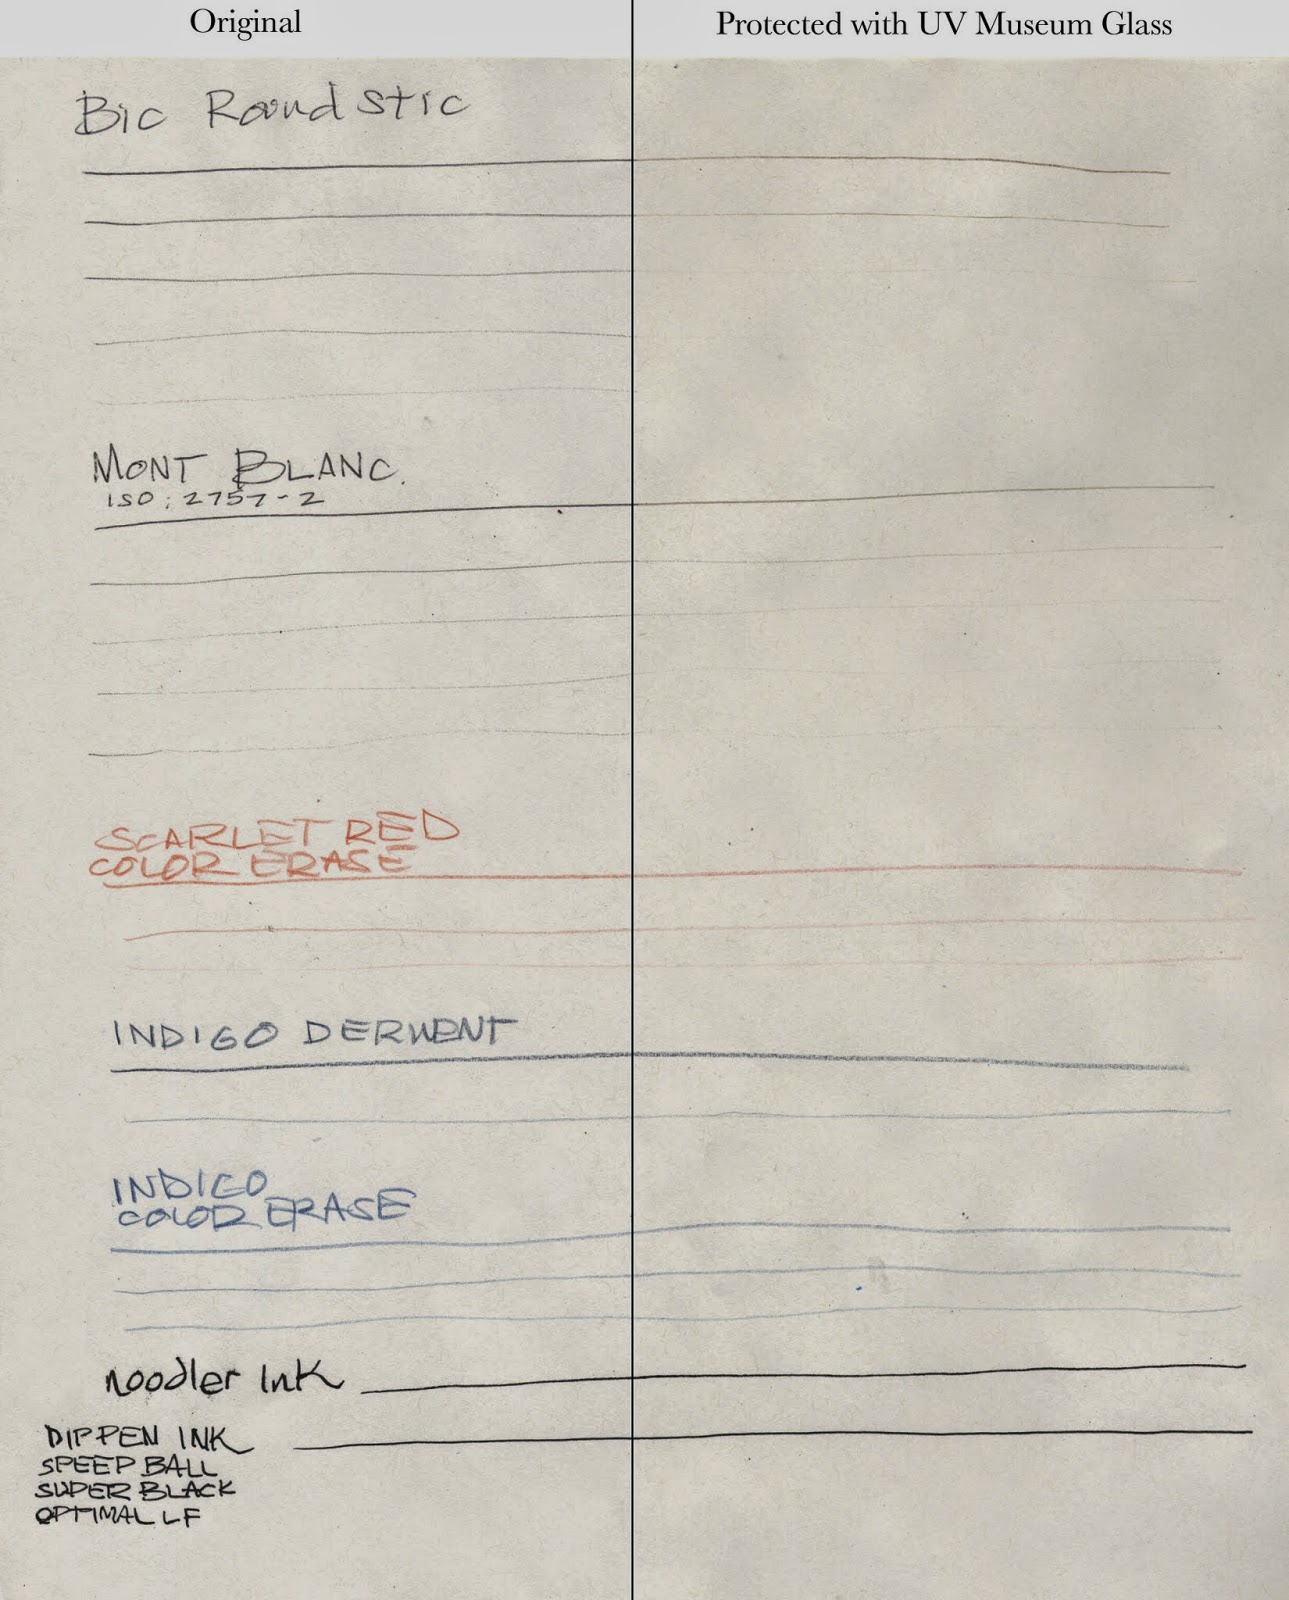 Original
Protected with UV Museum Glass
Bic Round Stic
MONT BLANC.
ISO: 2757-2
SCARLET RED
COLOR ERASE
INDIGO DERWENT
INDIGO
COLOR ERASE
noodler Ink
DIP PEN INK
SPEEP BALL
SUPER BLACK
OPTIMAL LF